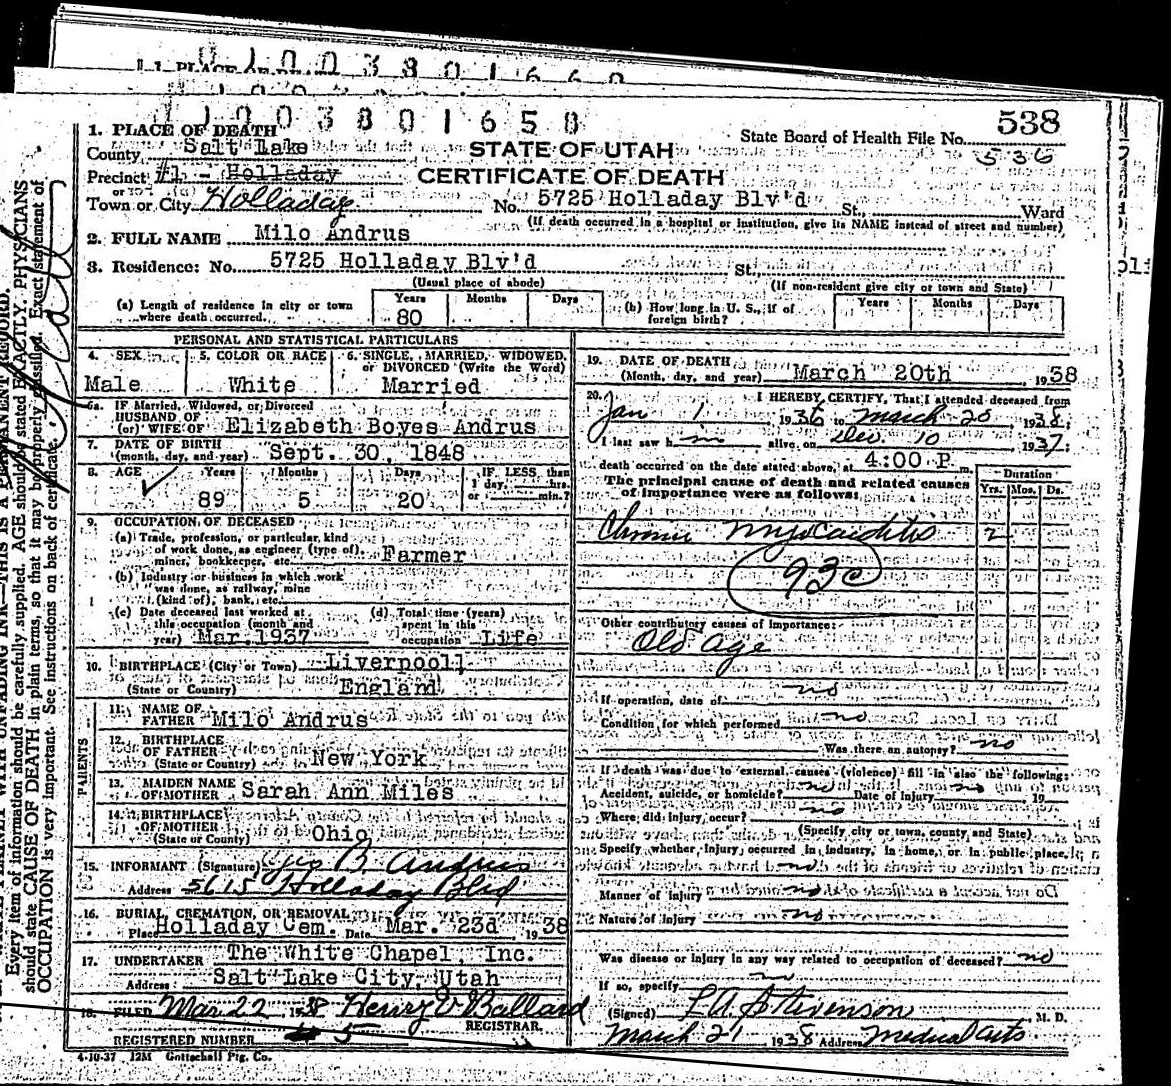 1003801660
1. PLACE OF DEATH
1003801658
538
1. PLACE OF DEATH
State Board of Health File No. 536
County Salt Lake
STATE OF UTAH
Precinct #1 - Holladay
CERTIFICATE OF DEATH
or
Town or City Holladay No. 5725 Holladay Blv'd St., Ward
(If death occurred in a hospital or institution, give its NAME instead of street and number)
2. FULL NAME Milo Andrus
3. Residence: No. 5725 Holladay Blv'd St.
(Usual place of abode) (If non-resident give city or town and State)
(a) Length of residence in city or town where death occurred. Years 80 Months Days
(b) How long in U. S., if of foreign birth? Years Months Days
PERSONAL AND STATISTICAL PARTICULARS
4. SEX Male
5. COLOR OR RACE White
6. SINGLE, MARRIED, WIDOWED, or DIVORCED (Write the Word) Married
6a. IF Married, Widowed, or Divorced
HUSBAND OF
(or) WIFE OF Elizabeth Boyes Andrus
7. DATE OF BIRTH
(month, day, and year) Sept. 30, 1848
8. AGE Years 89 Months 5 Days 20 IF LESS than 1 day, hrs. or min.?
9. OCCUPATION OF DECEASED
(a) Trade, profession, or particular kind
of work done, as engineer (type of),
miner, bookkeeper, etc. Farmer
(b) Industry or business in which work
was done, as railway, mine
(kind of), bank, etc.
(c) Date deceased last worked at
this occupation (month and
year) Mar. 1937
(d) Total time (years)
spent in this
occupation Life
10. BIRTHPLACE (City or Town) Liverpooll
(State or Country) England
PARENTS
11. NAME OF
FATHER Milo Andrus
12. BIRTHPLACE
OF FATHER
(State or Country) New York
13. MAIDEN NAME
OF MOTHER Sarah Ann Miles
14. BIRTHPLACE
OF MOTHER
(State or Country) Ohio
15. INFORMANT (Signature) Geo B. Andrus
Address 5615 Holladay Blvd
16. BURIAL, CREMATION, OR REMOVAL
Place Holladay Cem. Date Mar. 23d, 1938
17. UNDERTAKER The White Chapel, Inc.
Address Salt Lake City, Utah
18. FILED Mar 22 1938 Henry V Ballard
REGISTRAR.
REGISTERED NUMBER 5
4-10-37 12M Gottschall Ptg. Co.
19. DATE OF DEATH
(Month, day, and year) March 20th, 1938
20. I HEREBY CERTIFY, That I attended deceased from
Jan 1 1936 to March 20 1938;
I last saw him alive on Dec. 10 1937;
death occurred on the date stated above, at 4:00 P. m.
The principal cause of death and related causes
of importance were as follows:
Duration
Yrs. Mos. Ds.
Chronic Myocarditis 2
93c
Other contributory causes of importance:
Old Age
If operation, date of no
Condition for which performed no
Was there an autopsy? no
If death was due to external causes (violence) fill in also the following:
Accident, suicide, or homicide? no Date of injury no 19
Where did injury occur? no
(Specify city or town, county and State)
Specify whether injury occurred in industry, in home, or in public place.
no
Manner of injury no
Nature of injury no
Was disease or injury in any way related to occupation of deceased? no
If so, specify no
(Signed) L.A. Stevenson M. D.
March 21 1938 Address Medical Arts
Every item of information should be carefully supplied. AGE should be stated EXACTLY. PHYSICIANS
should state CAUSE OF DEATH in plain terms, so that it may be properly classified. Exact statement of
OCCUPATION is very important. See instructions on back of certificate.